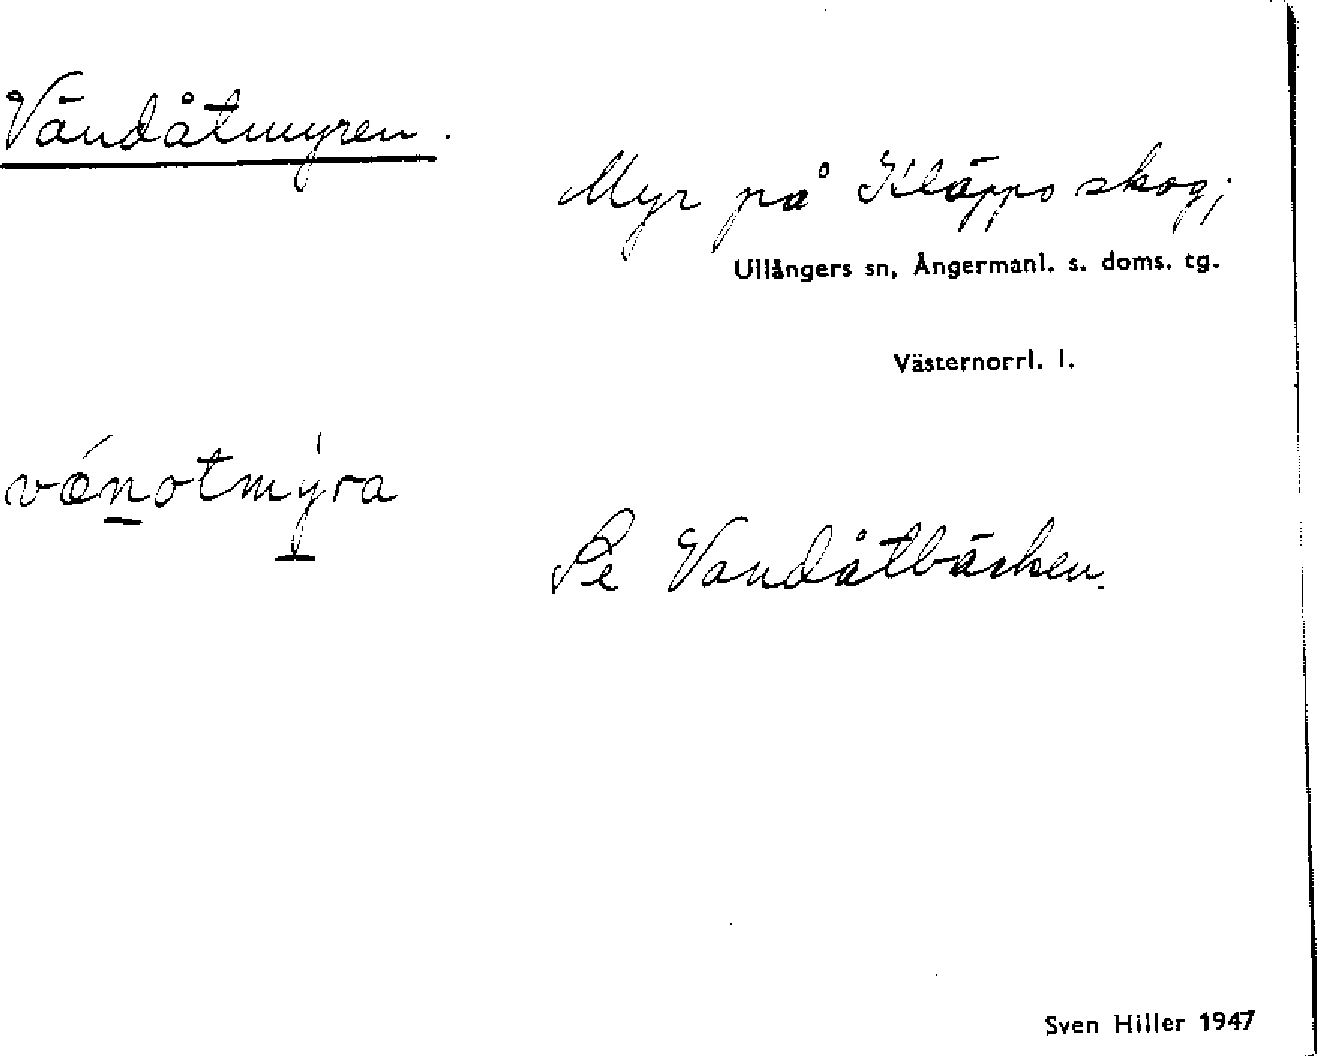 Vändåtmyren.
Myr på Kläpps skog;
Ullångers sn, Ångermanl. s. doms. tg.
Västernorrl. l.
vǽnotmýra
Se Vandåtbäcken.
Sven Hiller 1947